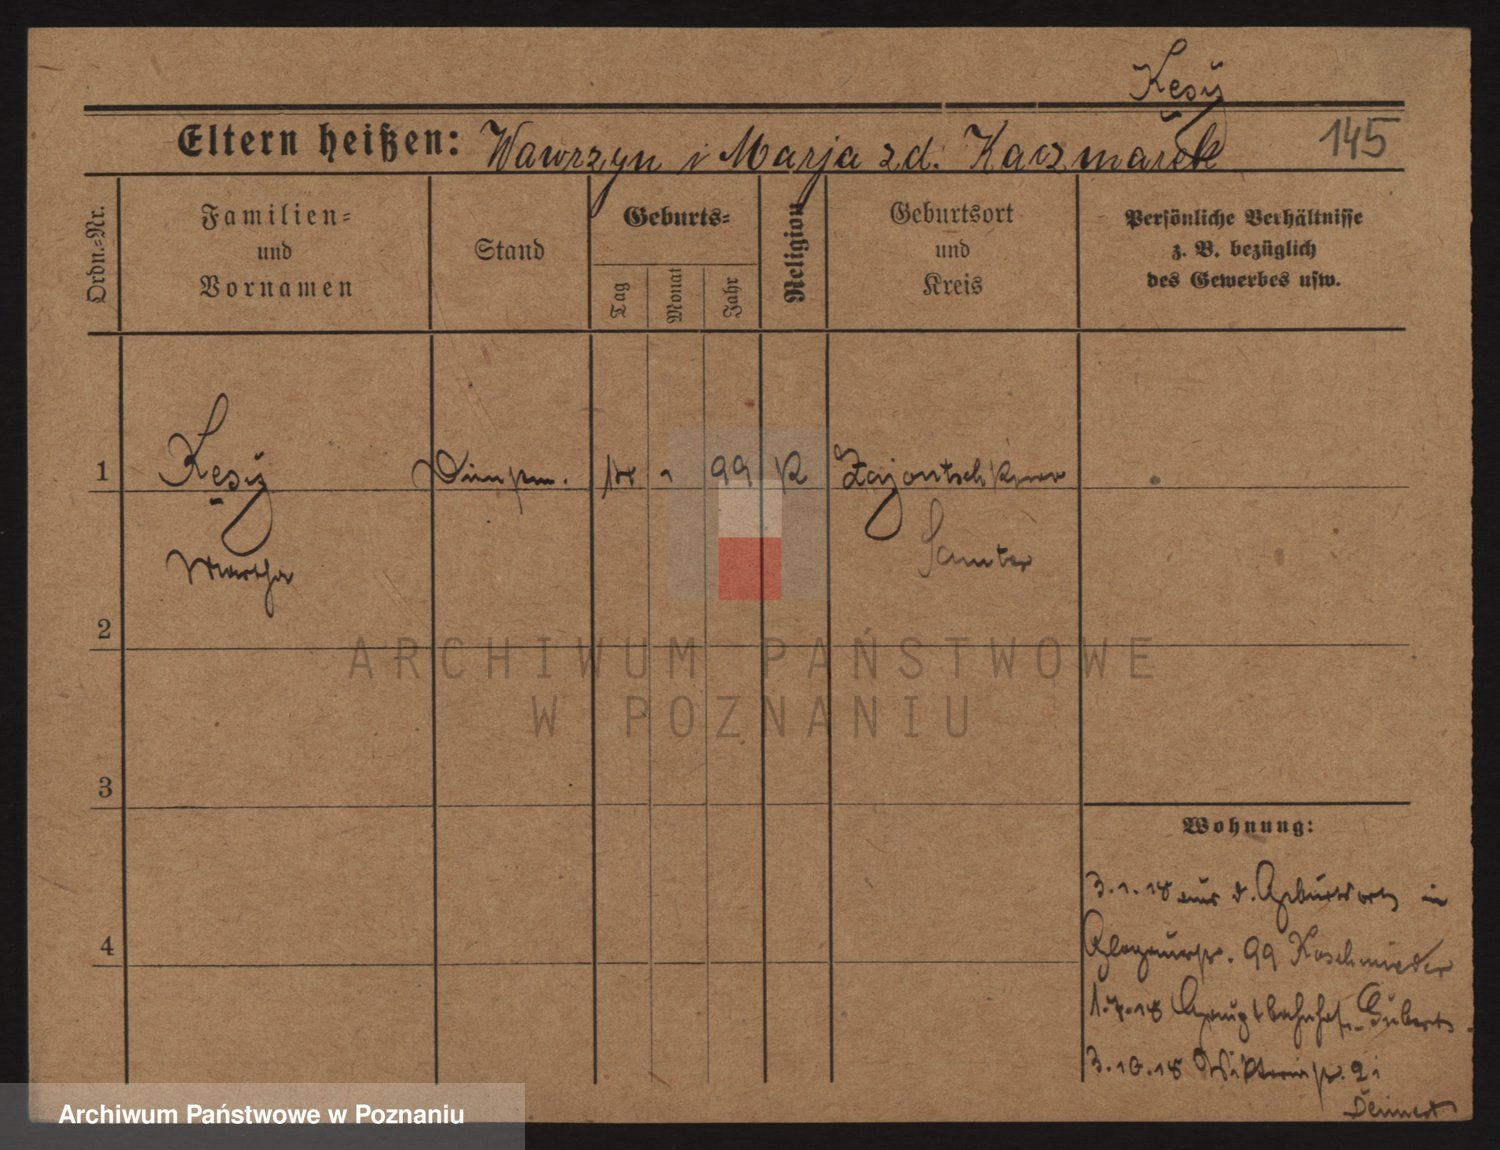 Kęsÿ
Eltern heißen: Wawrzyn i Marja zd. Kaczmarek 145
Ordn.=Nr.
Familien=
und
Vornamen
Stand
Geburts=
Tag
Monat
Jahr
Religion
Geburtsort
und
Kreis
Persönliche Verhältnisse
z. B. bezüglich
des Gewerbes usw.
1 Kęsÿ 1 99 K Zajontschkowo
Samter
Martha
2
ARCHIWUM PAŃSTWOWE
W POZNANIU
3
Wohnung:
3.1.18 aus d. Geburtsort in
4
Glogauerstr. 99 Koschmieder
1.7.18 Hauptbahnhof
3.10.18
Archiwum Państwowe w Poznaniu